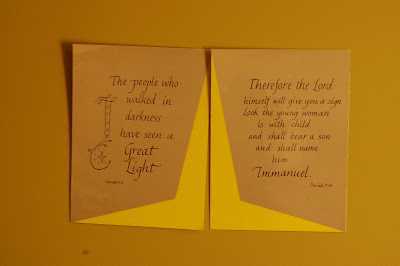 The people who
walked in
darkness
have seen a
Great
Light
Therefore the Lord
himself will give you a sign
Look the young woman
is with child
and shall bear a son
and shall name
him
Immanuel.